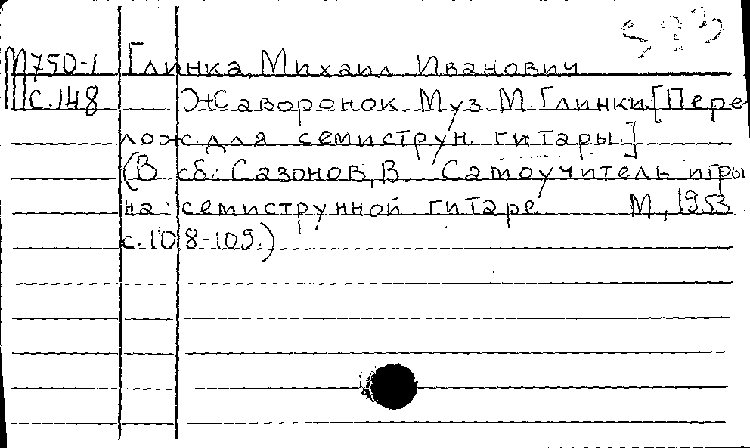 593
М750-1 Глинка, Михаил Иванович
с.148 Жаворонок. Муз. М. Глинки. [Пере
лож. для семиструн. гитары.]
(В сб.: Сазонов, В. Самоучитель игры
на семиструнной гитаре. М., 1953
с. 108-109.)